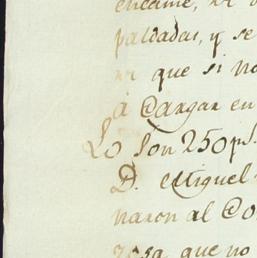 paldadas, y se
que si no
á Cargar en
Lo son 250 ps.
D. Miguel
naron al Co
rosa que no